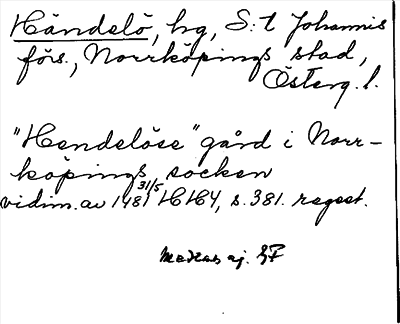 Händelö, hg, S:t Johannis
förs., Norrköpings stad,
Österg. l.
"Hendelöse" gård i Norr-
köpings socken
31/5
vidim. av 1481 HH4, s. 381. regest.
Medtas ej.